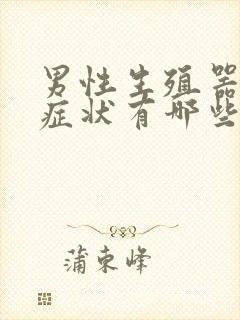 男性生殖器
症状有哪些
蒲束峰